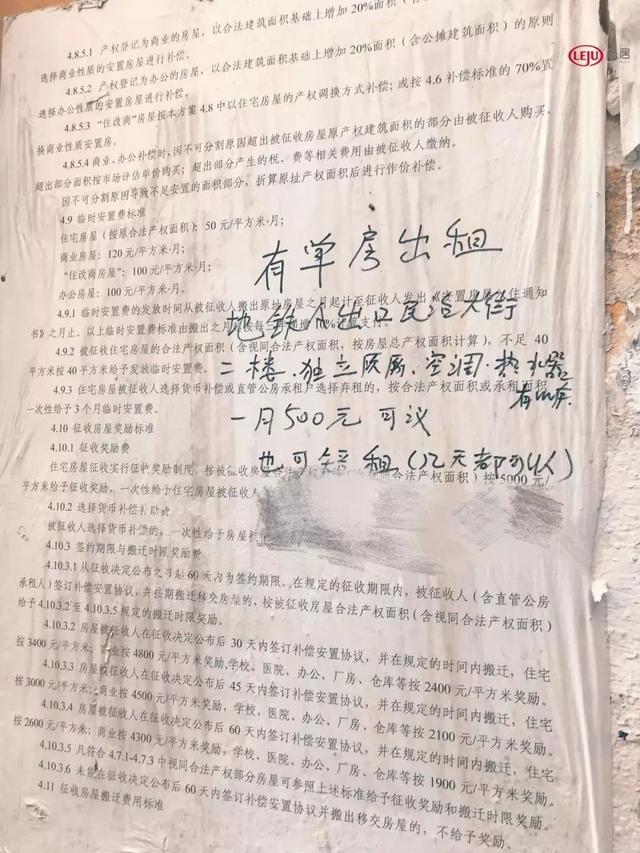 4.8.5.1 产权登记为商业的房屋，以合法建筑面积基础上增加20%面积（
选择商业性质的安置房屋进行补偿。
4.8.5.2 产权登记为办公的房屋，以合法建筑面积基础上增加20%面积（含公摊建筑面积）的原则
选择办公性质的安置房屋进行补偿。
4.8.5.3 “住改商”房屋按本方案4.8中以住宅房屋的产权调换方式补偿；或按4.6补偿标准的70%置
换商业性质安置房。
4.8.5.4 商业、办公补偿时，因不可分割原因超出被征收房屋原产权建筑面积的部分由被征收人购买。
超出部分面积按市场评估单价购买；超出部分产生的税、费等相关费用由被征收人缴纳。
因不可分割原因导致不足安置的面积部分，折算原址产权面积后进行作价补偿。
4.9 临时安置费标准
住宅房屋（按原合法产权面积）：50元/平方米·月；
商业房屋：120元/平方米·月；
“住改商房屋”：100元/平方米·月；
办公房屋：100元/平方米·月。
有单房出租
4.9.1 临时安置费的发放时间从被征收人搬出原址房屋之月起计至征收人发出《安置房屋入住通知
书》之月止。以上临时安置费标准由搬出之月起按每年
地铁 出口民治大街
4.9.2 被征收住宅房屋的合法产权面积（含视同合法产权面积，按房屋总产权面积计算），不足 40
平方米按40平方米给予发放临时安置费。
二楼.独立厕所.空调.热水器
有
4.9.3 住宅房屋被征收人选择货币补偿或直管公房承租户选择弃租的，按合法产权面积或承租面积
一次性给予3个月临时安置费。
一月500元 可议
4.10 征收房屋奖励标准
4.10.1 征收奖励费
也可短租（几天都可以）
住宅房屋征收实行征收奖励制度，按被征收房屋合法产权面积（含视同合法产权面积）按5000元/
平方米给予征收奖励，一次性给予住宅房屋被征收人
4.10.2 选择货币补偿补贴费
被征收人选择货币补偿的，一次性给予房屋被
4.10.3 签约期限与搬迁时限奖励费
4.10.3.1从征收决定公布之日起60天内为签约期限。在规定的征收期限内，被征收人（含直管公房
承租人）签订补偿安置协议，并按期搬迁移交房屋的，按被征收房屋合法产权面积（含视同合法产权面积）
给予4.10.3.2至4.10.3.5规定的搬迁时限奖励。
4.10.3.2 房屋被征收人在征收决定公布后30天内签订补偿安置协议，并在规定的时间内搬迁，住宅
按3400元/平方米；商业按4800元/平方米奖励,学校、医院、办公、厂房、仓库等按2400元/平方米奖励。
4.10.3.3 房屋被征收人在征收决定公布后45天内签订补偿安置协议，并在规定的时间内搬迁，住宅
按3000元/平方米；商业按4500元/平方米奖励，学校、医院、办公、厂房、仓库等按2100元/平方米奖励。
4.10.3.4 房屋被征收人在征收决定公布后60天内签订补偿安置协议，并在规定的时间内搬迁，住宅
按2600元/平方米；商业按4300元/平方米奖励，学校、医院、办公、厂房、仓库等按1900元/平方米奖励。
4.10.3.5 凡符合4.7.1-4.7.3中视同合法产权部分房屋可参照上述标准给予征收奖励和搬迁时限奖励。
4.10.3.6 未能在征收决定公布后60天内签订补偿安置协议并搬出移交房屋的，不给予奖励。
4.11 征收房屋搬迁费用标准
LEJU
居